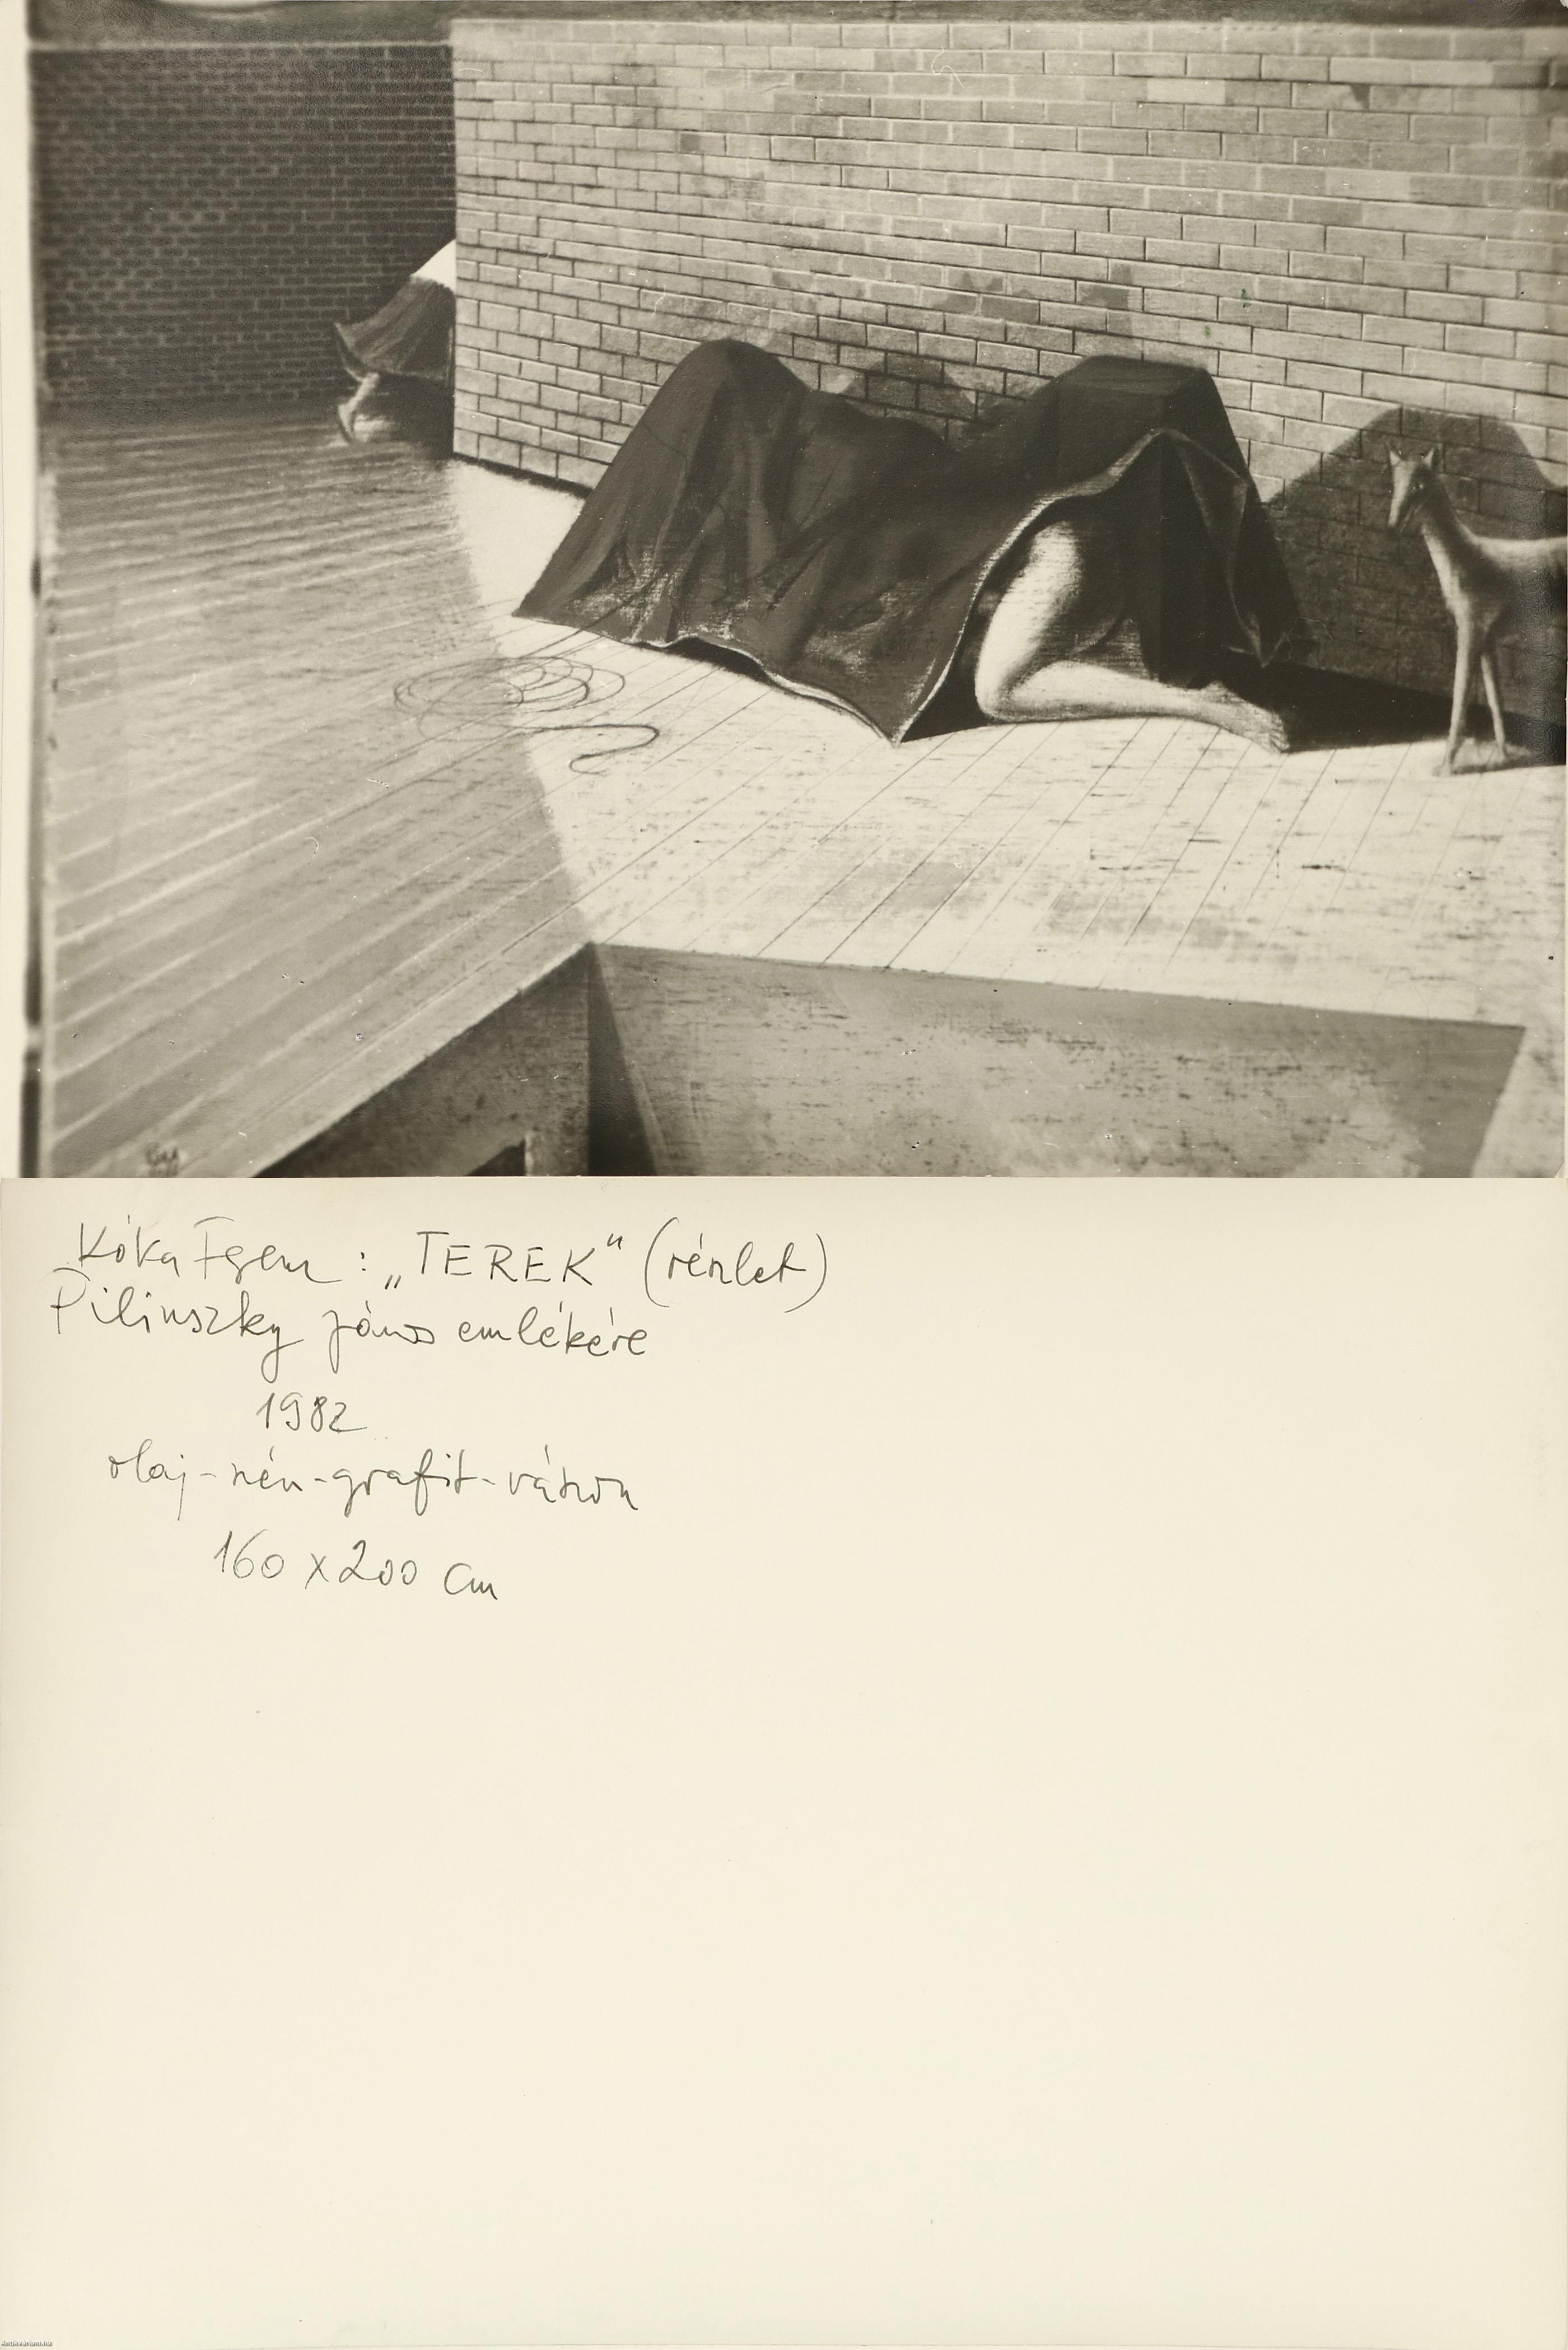 Kóka Ferenc : „TEREK" (részlet)
Pilinszky János emlékére
1982
olaj-szén-grafit-vászon
160 x 200 cm
Antikvarium.hu